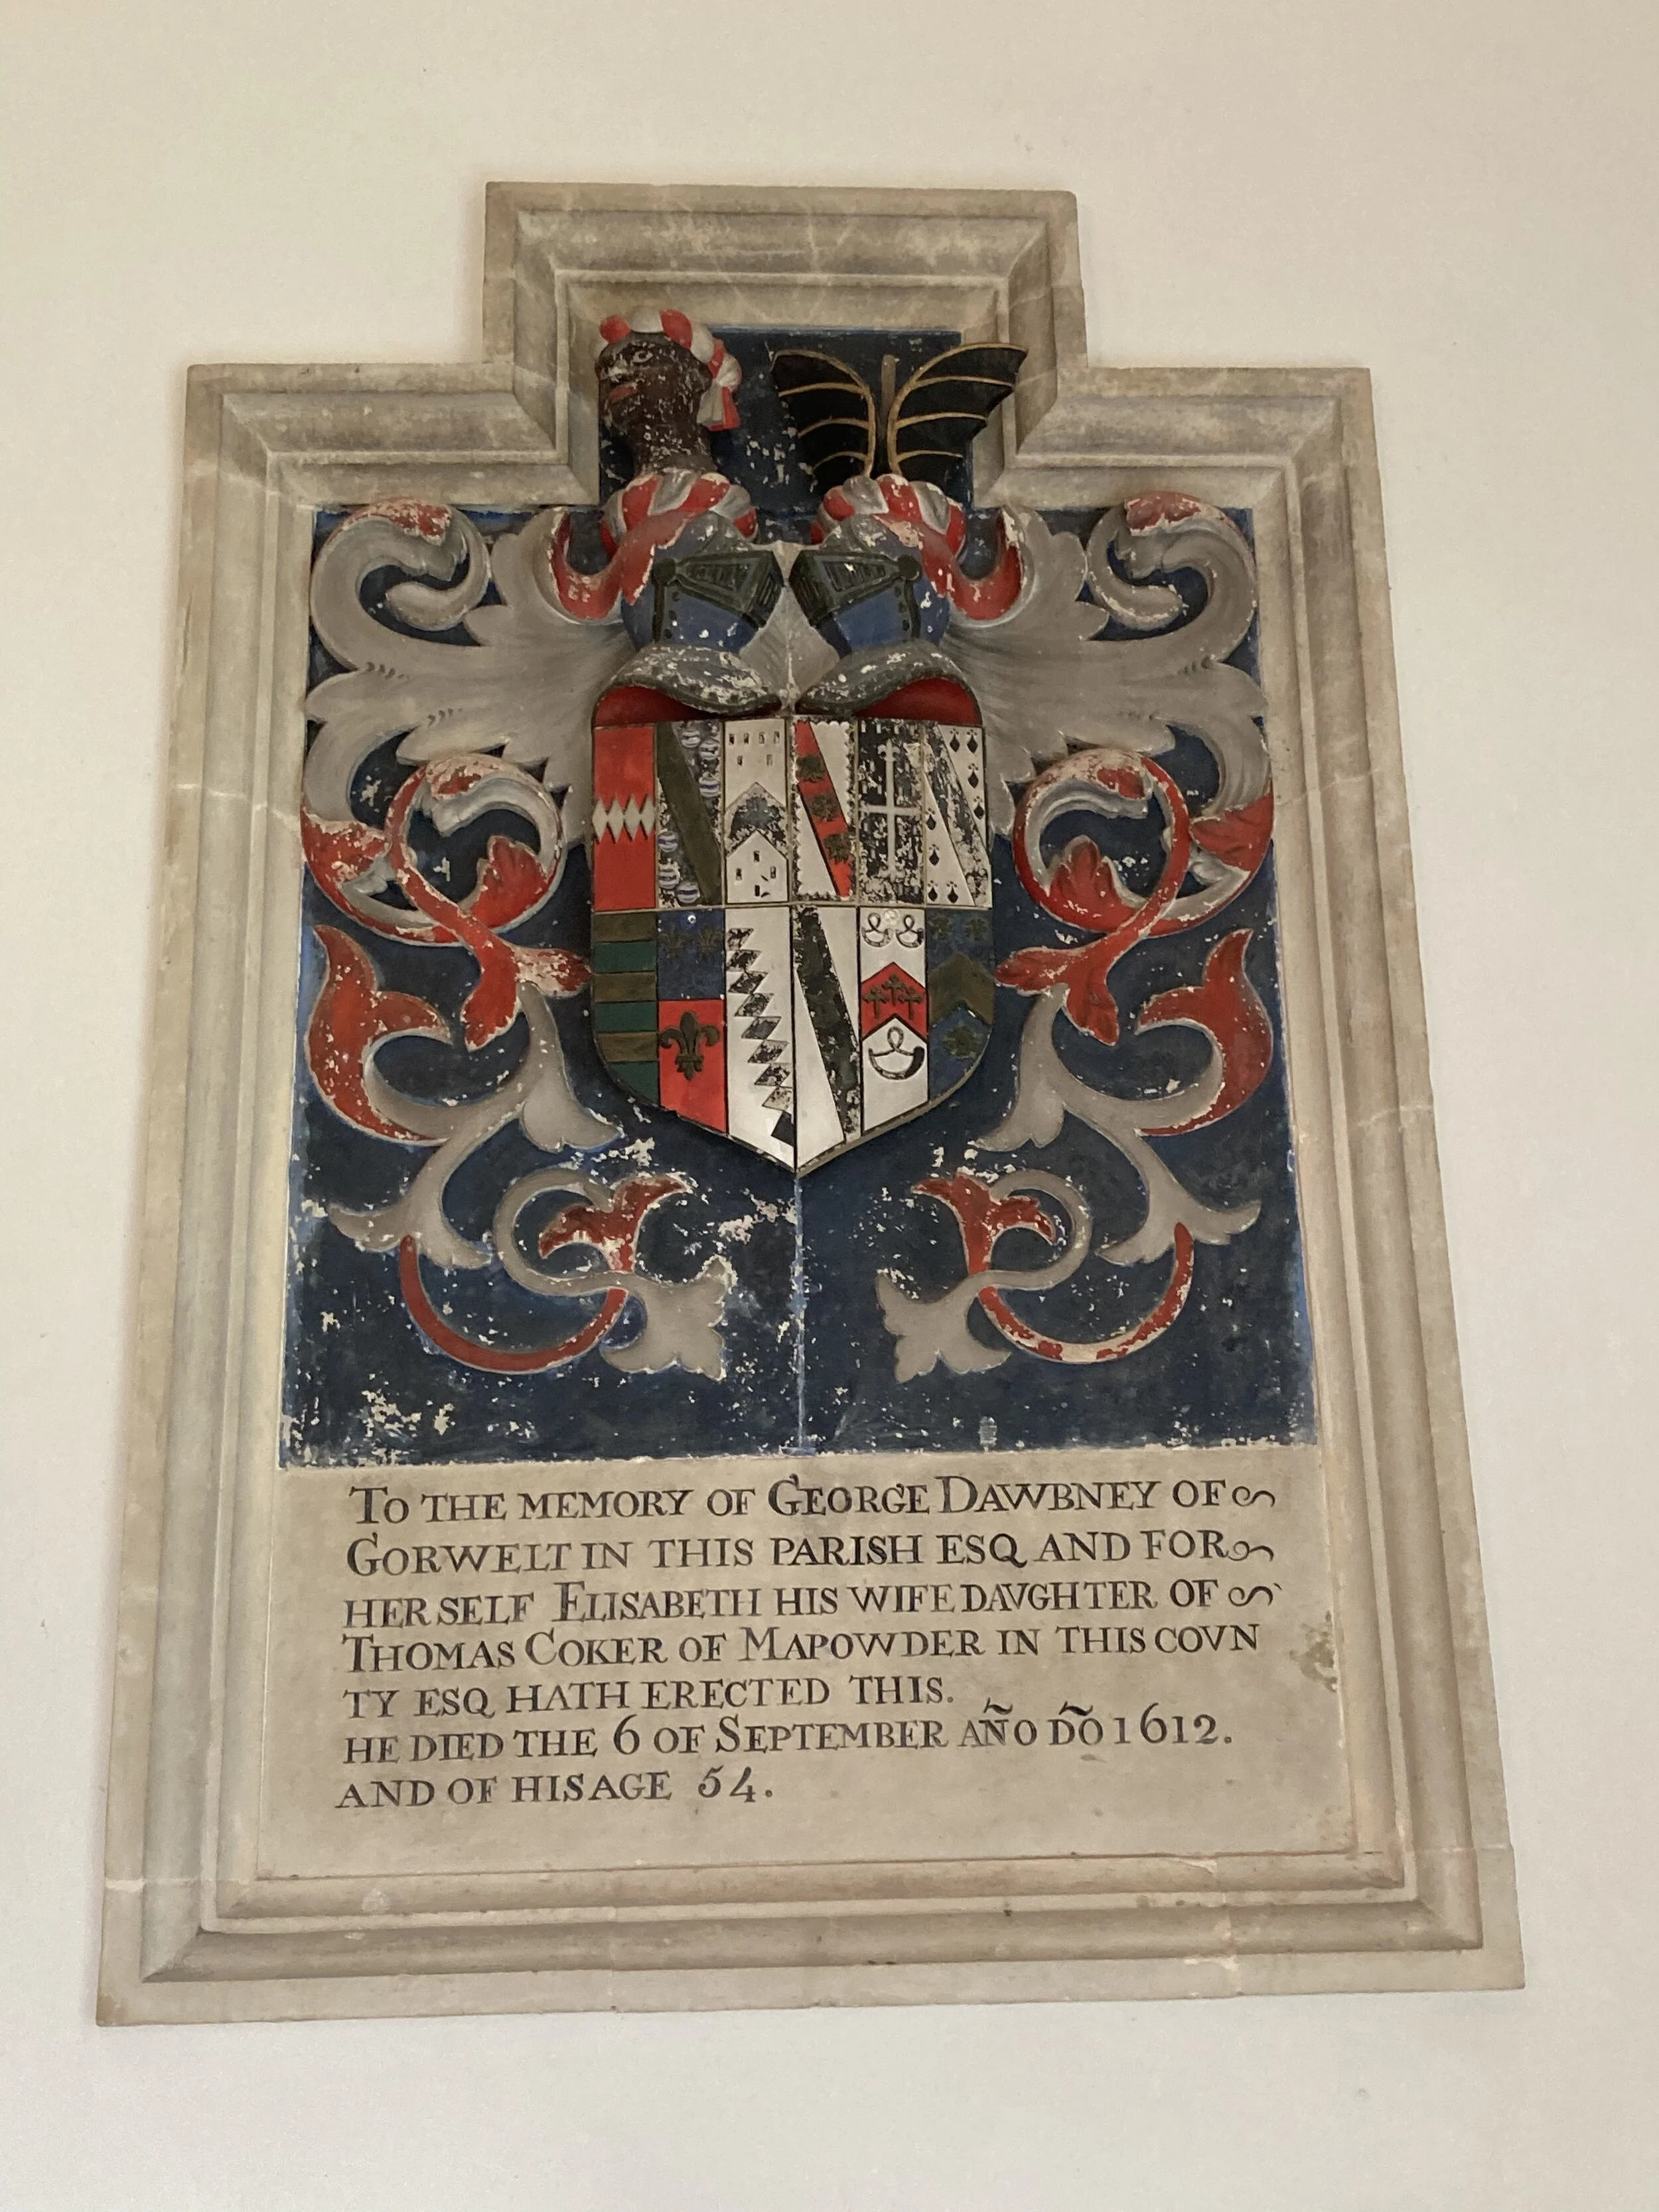 TO THE MEMORY OF GEORGE DAWBNEY OF
GORWELT IN THIS PARISH ESQ AND FOR
HERSELF ELISABETH HIS WIFE DAVGHTER OF
THOMAS COKER OF MAPOWDER IN THIS COVN
TY ESQ HATH ERECTED THIS.
HE DIED THE 6 OF SEPTEMBER AÑO DÕO 1612.
AND OF HIS AGE 54.